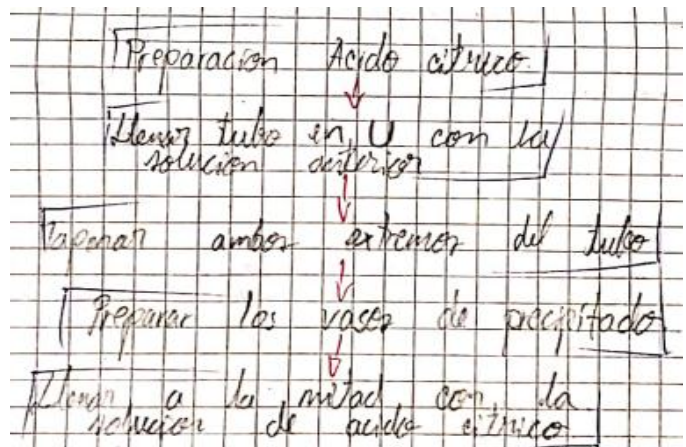 Preparacion Acido citrico
Llenar tubo en U con la
solucion anterior
Taponar ambos extremos del tubo
Preparar los vasos de precipitado
Llenar a la mitad con la
solucion de acido citrico